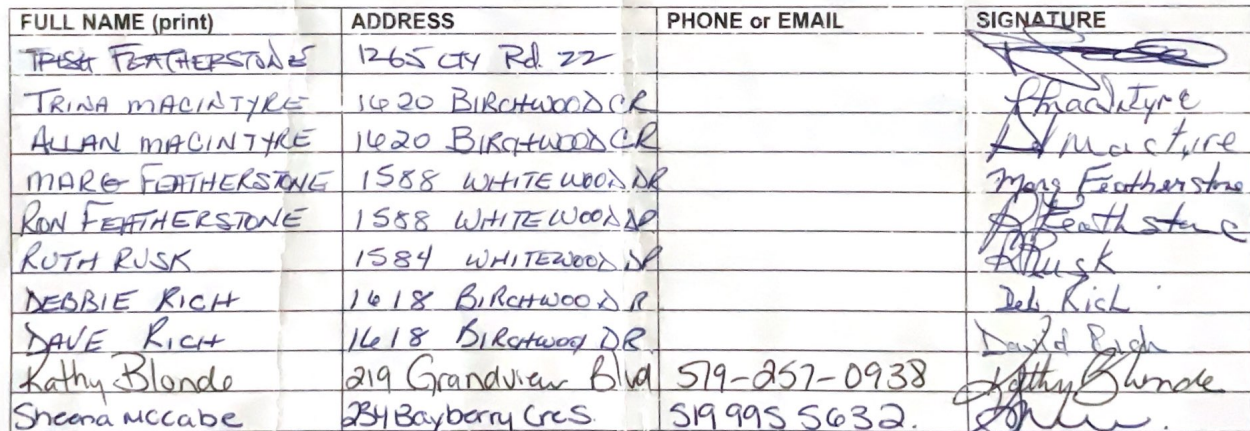 FULL NAME (print) ADDRESS PHONE or EMAIL SIGNATURE
TRISH FEATHERSTONE 1265 CTY Rd. 22
TRINA MACINTYRE 1620 BIRCHWOOD CR
ALLAN MACINTYRE 1620 BIRCHWOOD CR
MARG FEATHERSTONE 1588 WHITEWOOD DR Marg Featherstone
RON FEATHERSTONE 1588 WHITEWOOD DR
RUTH RUSK 1584 WHITEWOOD DR RRusk
DEBBIE RICH 1618 BIRCHWOOD DR Deb Rich
DAVE RICH 1618 BIRCHWOOD DR David Rich
Kathy Blonde 219 Grandview Blvd 519-257-0938 Kathy Blonde
Sheena McCabe 234 Bayberry Cres. 519 995 5632.